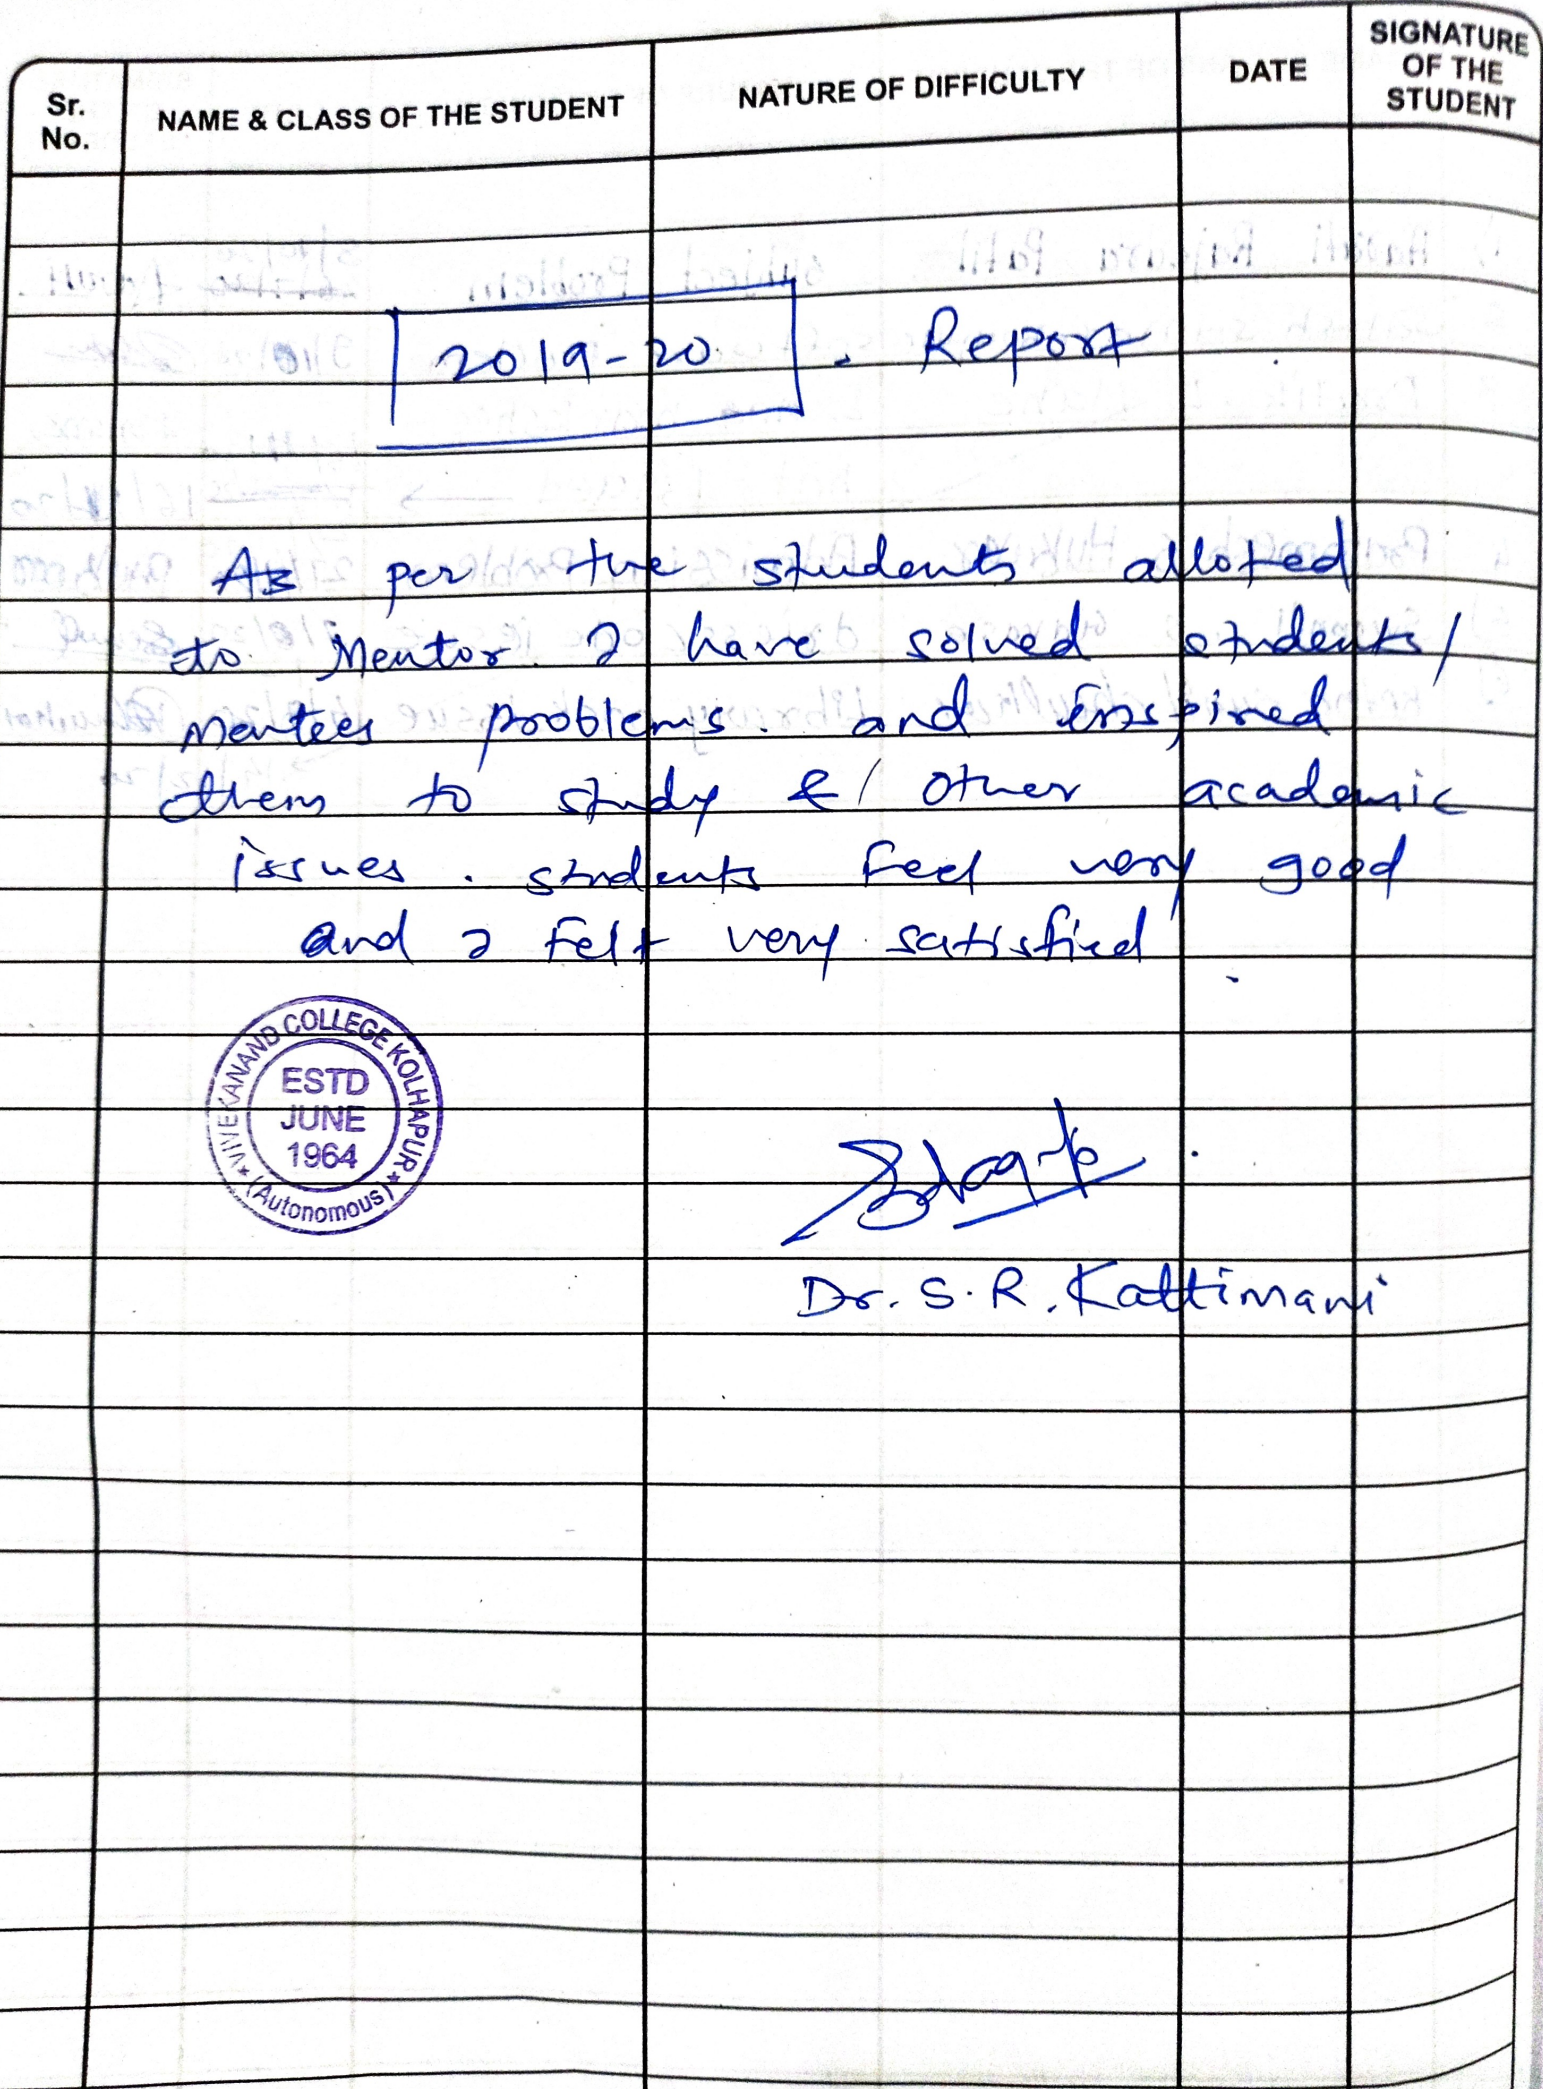 Sr. No.
NAME & CLASS OF THE STUDENT
NATURE OF DIFFICULTY
DATE
SIGNATURE OF THE STUDENT
2019-20. Report
As per the students alloted
to Mentor I have solved students/
Mentees problems. and inspired
them to study &/ other academic
issues. students feel very good
and I felt very satisfied.
VIVEKANAND COLLEGE KOLHAPUR
(Autonomous)
ESTD
JUNE
1964
Dr. S. R. Kattimani